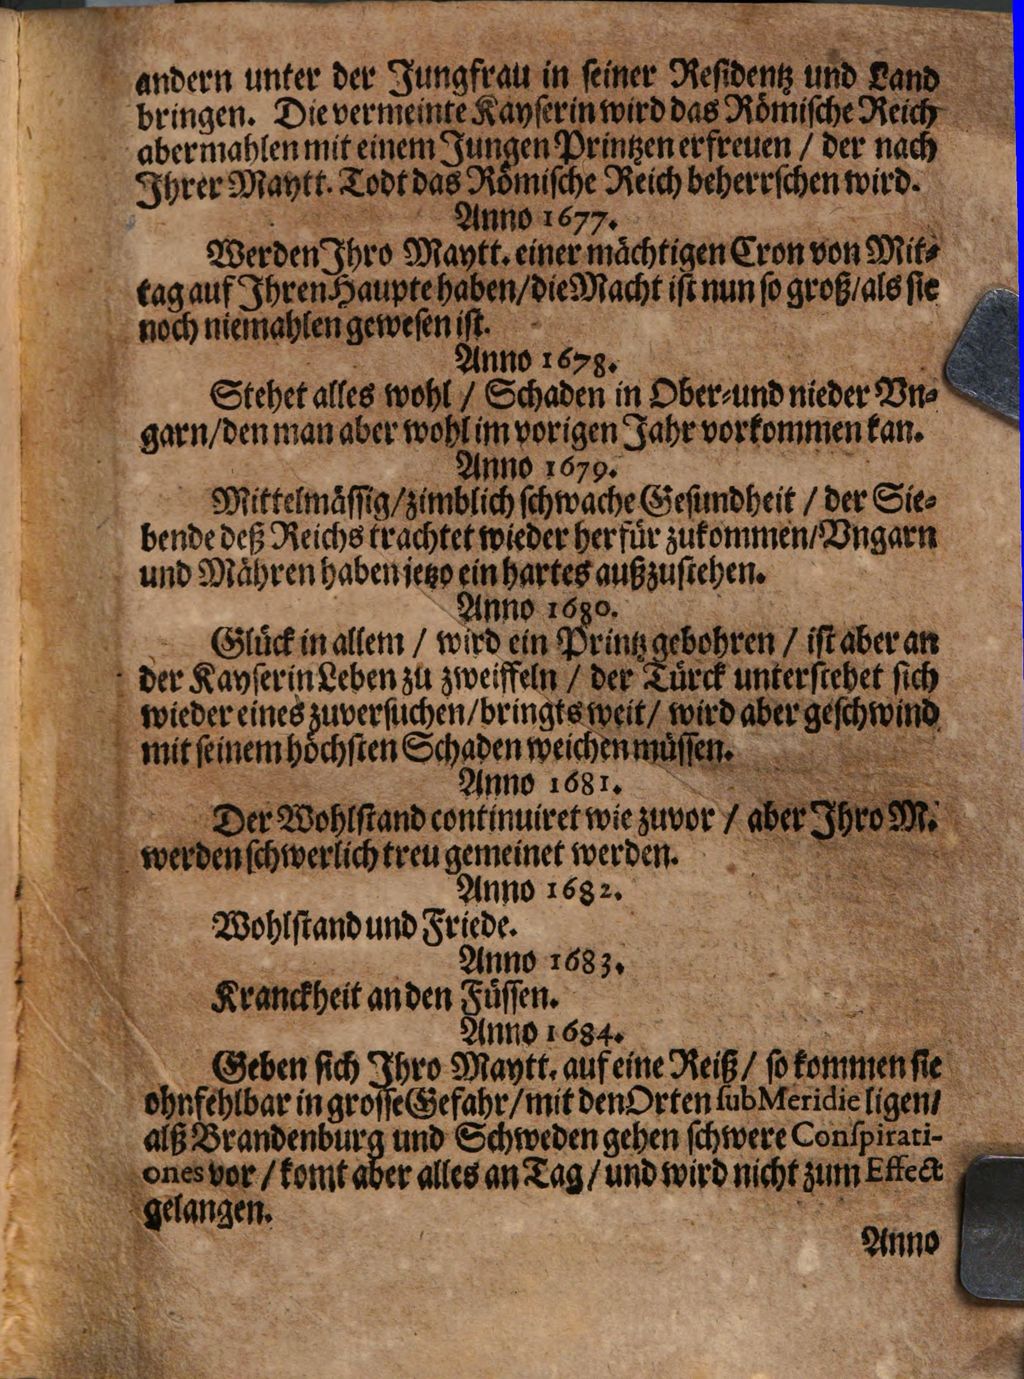 andern unter der Jungfrau in seiner Residentz und Land
bringen. Die vermeinte Kayserin wird das Römische Reich
abermahlen mit einem Jungen Printzen erfreuen / der nach
Ihrer Maytt. Todt das Römische Reich beherrschen wird.
Anno 1677.
Werden Ihro Maytt. einer mächtigen Cron von Mit-
tag auf Ihren Haupte haben/die Macht ist nun so groß/als sie
noch niemahlen gewesen ist.
Anno 1678.
Stehet alles wohl / Schaden in Ober-und nieder Vn-
garn/den man aber wohl im vorigen Jahr vorkommen kan.
Anno 1679.
Mittelmässig/zimblich schwache Gesundheit / der Sie-
bende deß Reichs trachtet wieder herfür zukommen/Vngarn
und Mähren haben jetzo ein hartes außzustehen.
Anno 1680.
Glück in allem / wird ein Printz gebohren / ist aber an
der Kayserin Leben zu zweiffeln / der Türck unterstehet sich
wieder eines zuversuchen/bringts weit/ wird aber geschwind
mit seinem höchsten Schaden weichen müssen.
Anno 1681.
Der Wohlstand continuiret wie zuvor / aber Ihro M.
werden schwerlich treu gemeinet werden.
Anno 1682.
Wohlstand und Friede.
Anno 1683.
Kranckheit an den Füssen.
Anno 1684.
Geben sich Ihro Maytt. auf eine Reiß / so kommen sie
ohnfehlbar in grosse Gefahr/mit den Orten sub Meridie ligen/
alß Brandenburg und Schweden gehen schwere Conspirati-
ones vor / komt aber alles an Tag / und wird nicht zum Effect
gelangen.
Anno